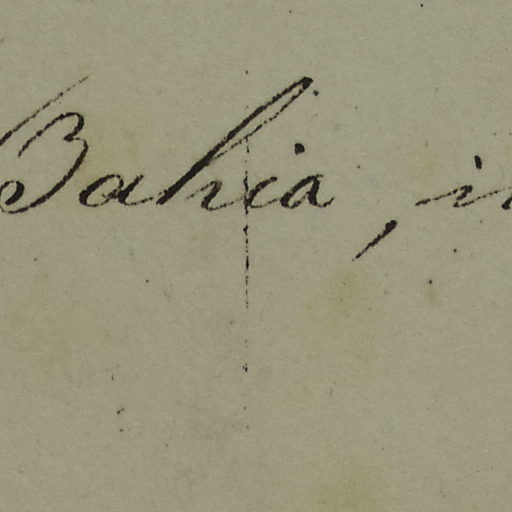 Bahia, i